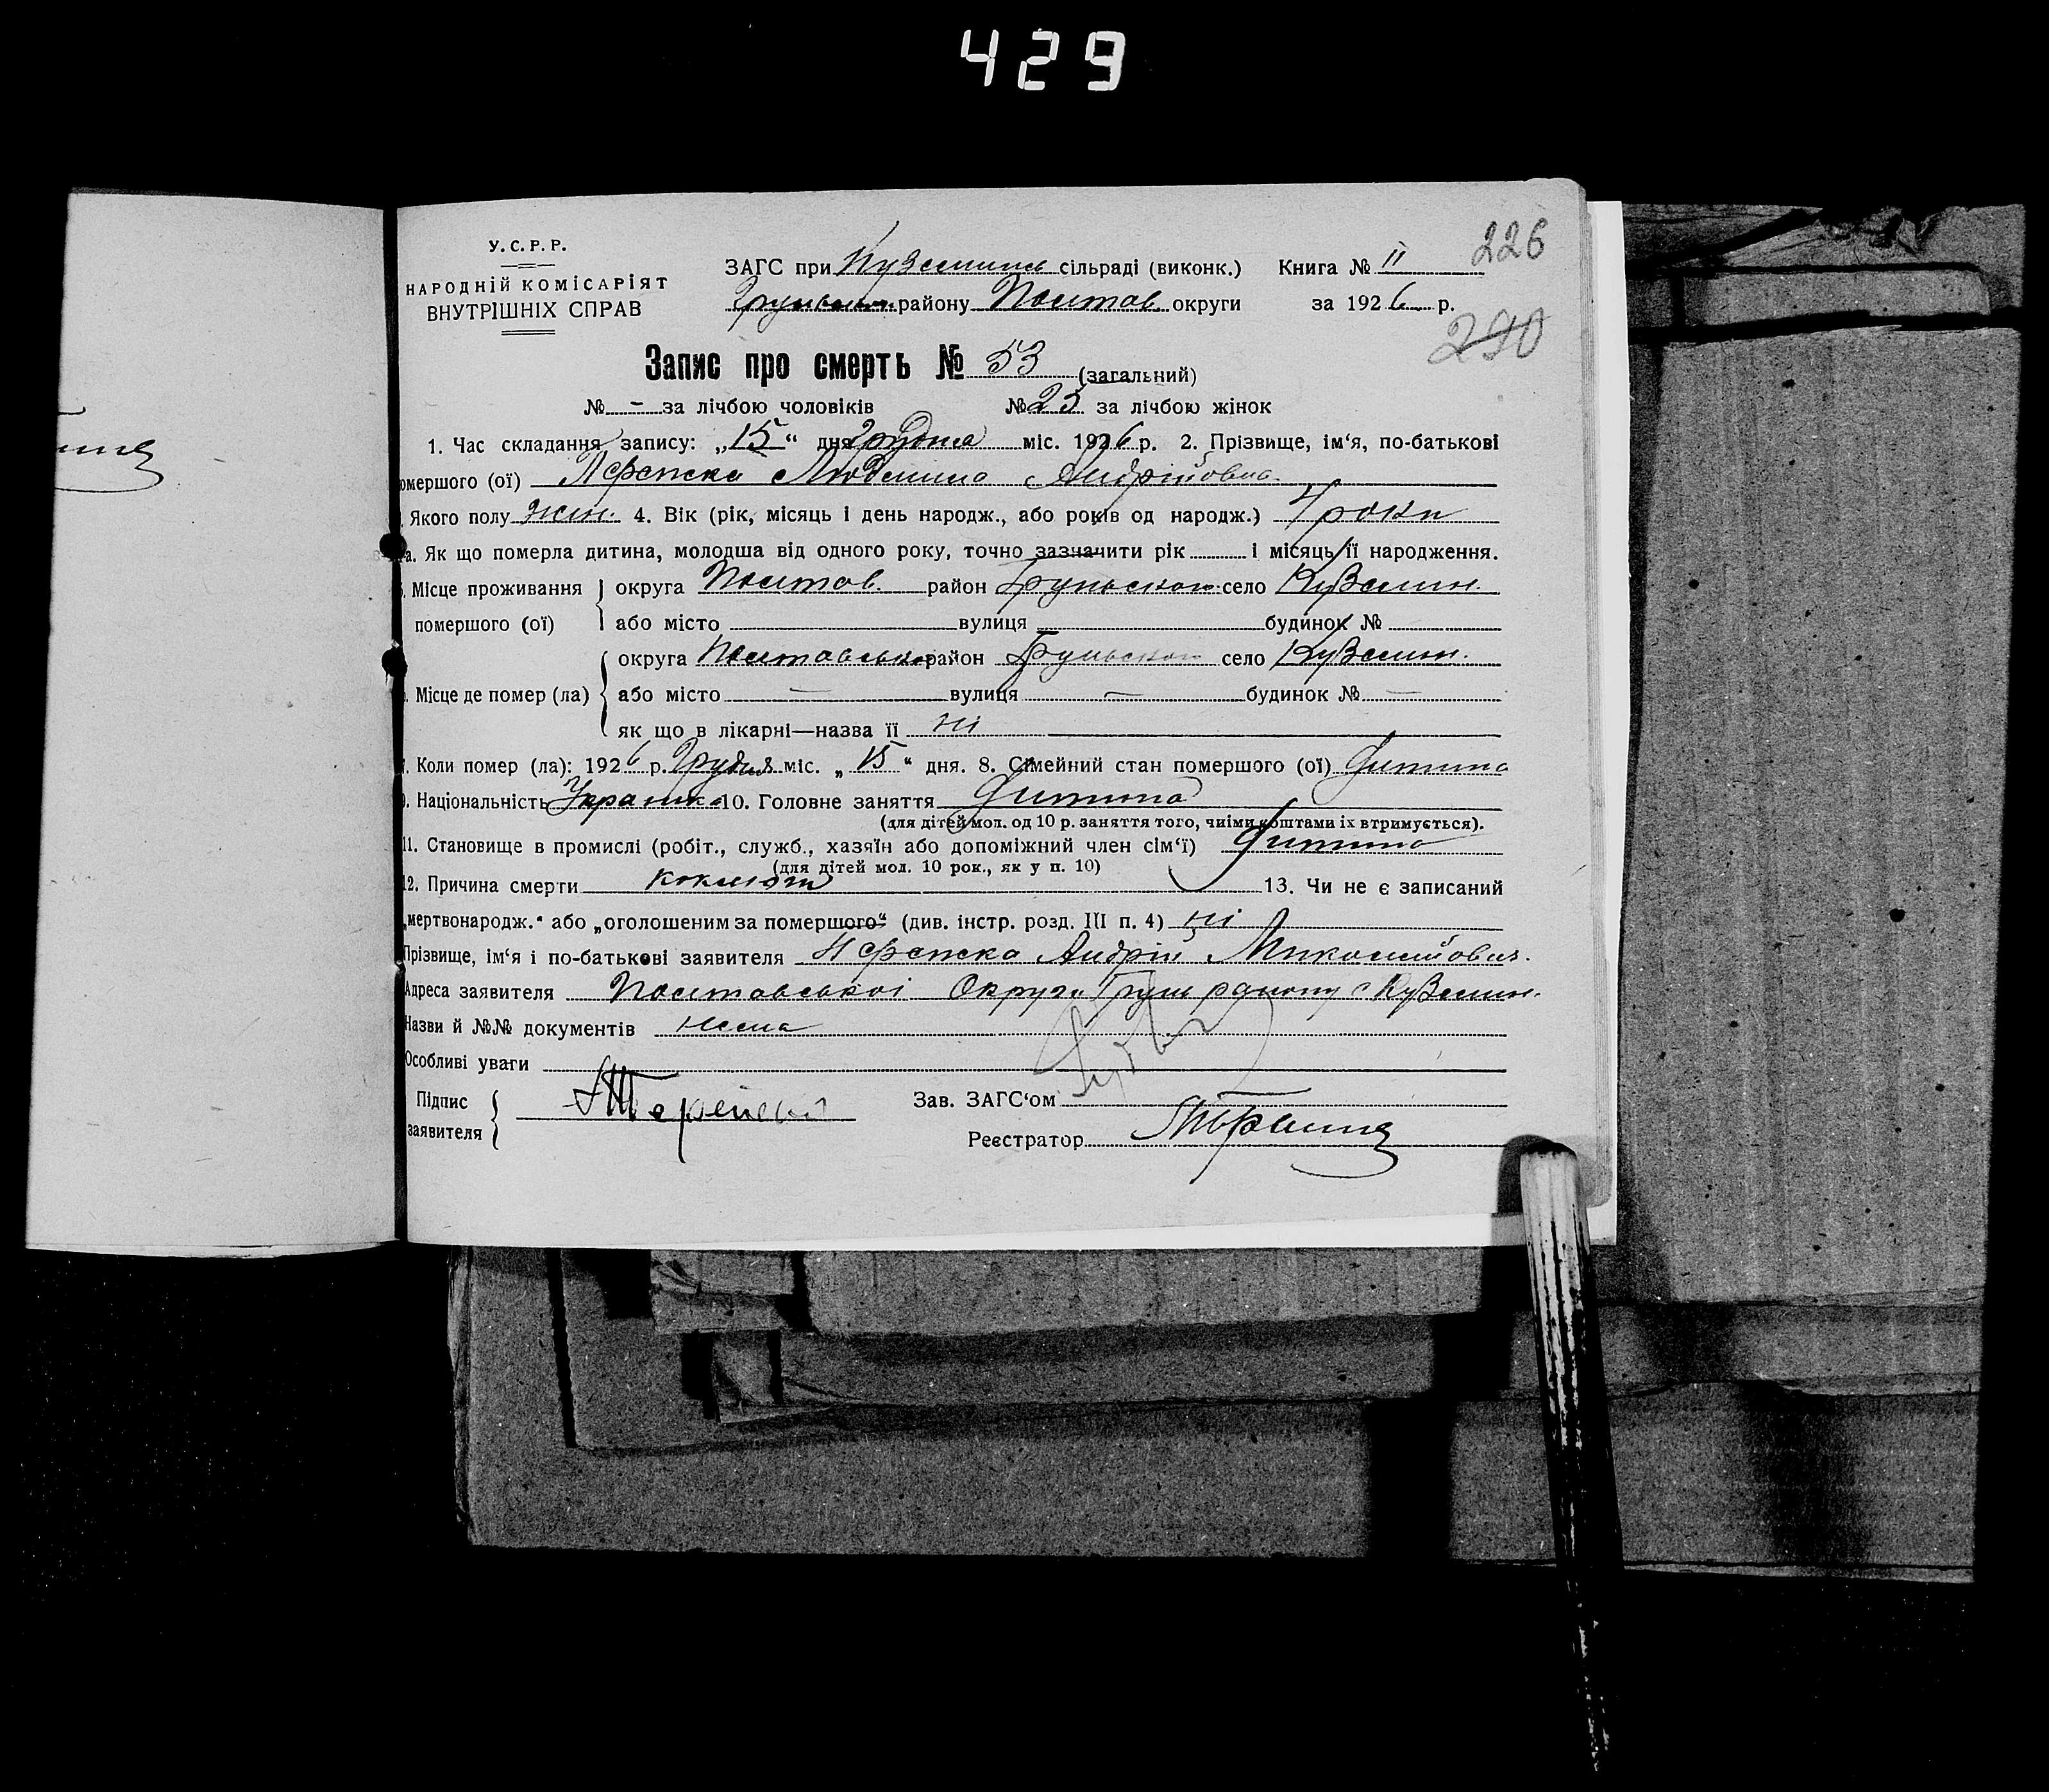 429
У.С.Р.Р.
НАРОДНІЙ КОМІСАРІЯТ
ВНУТРІШНІХ СПРАВ
ЗАГС при сільраді (виконк.) Книга № II
226
району Полтав. округи за 1926 р.
290
Запис про смерть № 53 (загальний)
№ - за лічбою чоловіків № 25 за лічбою жінок
1. Час складання запису: „15“ дня Грудня міс. 1926 р. 2. Прізвище, ім‘я, по-батькові
омершого (ої) Людмила Андрійовна
Якого полу жін. 4. Вік (рік, місяць і день народж., або років од народж.) 4 роки
а. Як що померла дитина, молодша від одного року, точно зазначити рік і місяць її народження.
Місце проживання округа Полтав. район Грунської село Куземин.
помершого (ої) або місто вулиця будинок №
округа Полтавської район Грунської село Куземин.
Місце де помер (ла) або місто — вулиця — будинок № —
як що в лікарні—назва її ні
Коли помер (ла): 1926 р. Грудня міс. „15“ дня. 8. Сімейний стан помершого (ої) дитина
Національність 10. Головне заняття дитина
(для дітей мол. од 10 р. заняття того, чиїми коштами їх втримується).
11. Становище в промислі (робіт., служб., хазяїн або допоміжний член сім‘ї) дитина
(для дітей мол. 10 рок., як у п. 10)
12. Причина смерти коклюш 13. Чи не є записаний
„мертвонародж.“ або „оголошеним за помершого“ (див. інстр. розд. III п. 4) ні
Прізвище, ім‘я і по-батькові заявителя Андрій
Адреса заявителя Полтавської Округи Грун району с Куземин.
Назви й №№ документів нема
Особливі уваги
Підпис
заявителя
Зав. ЗАГС‘ом
Реєстратор